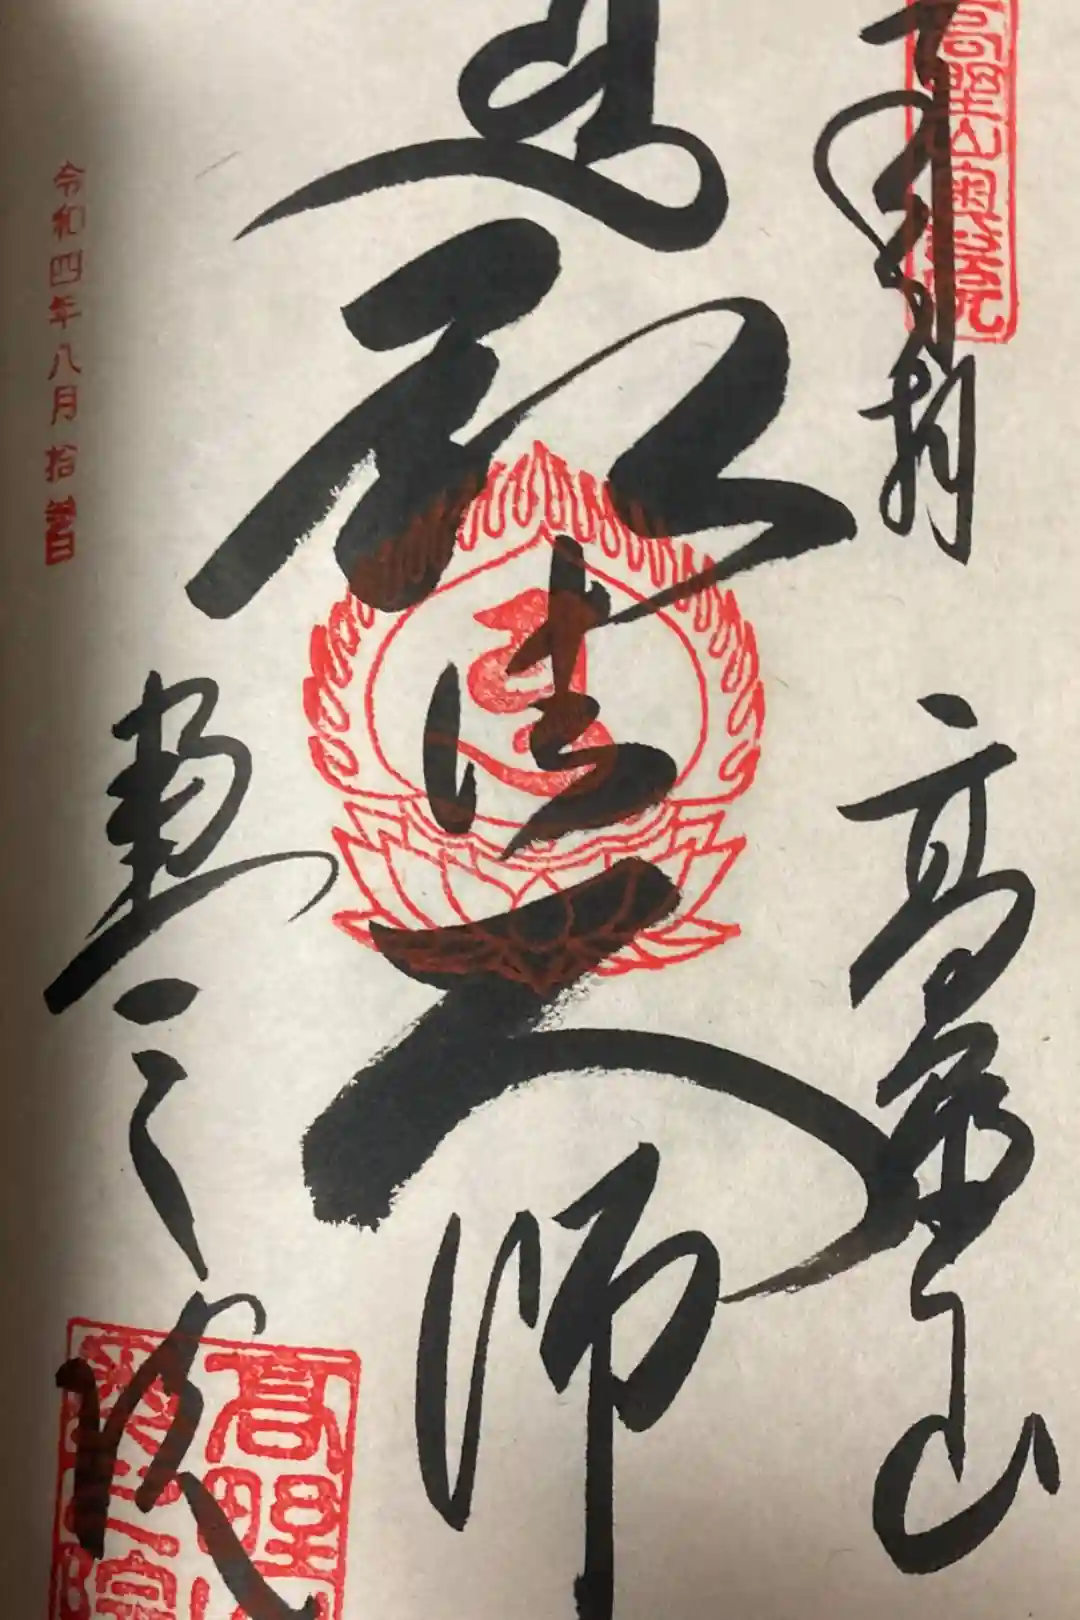 高野山奥之院
奉拝
高野山
弘法大師
奥之院
令和四年八月拾壹日